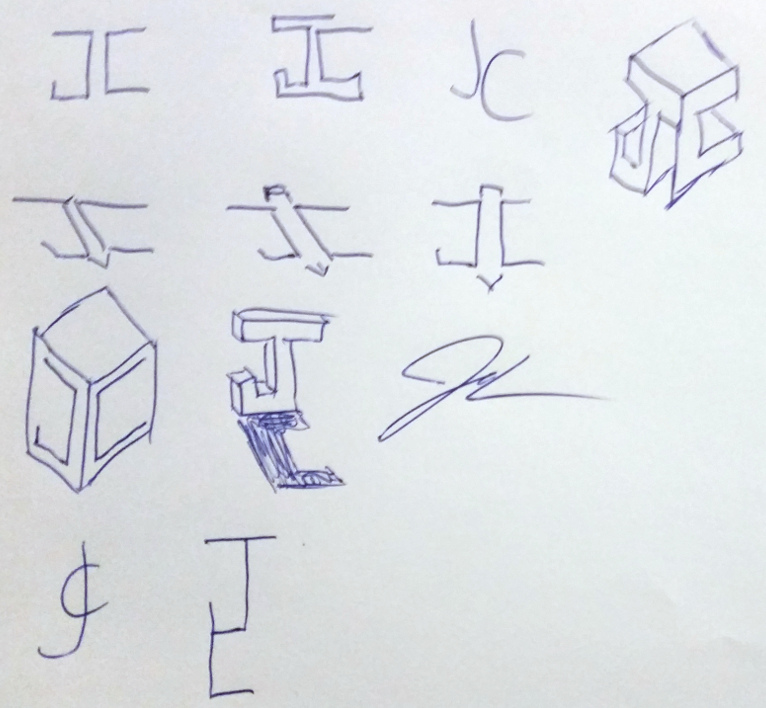 JC JC JC JC
JC JC JC
JC JC JC
JC JC